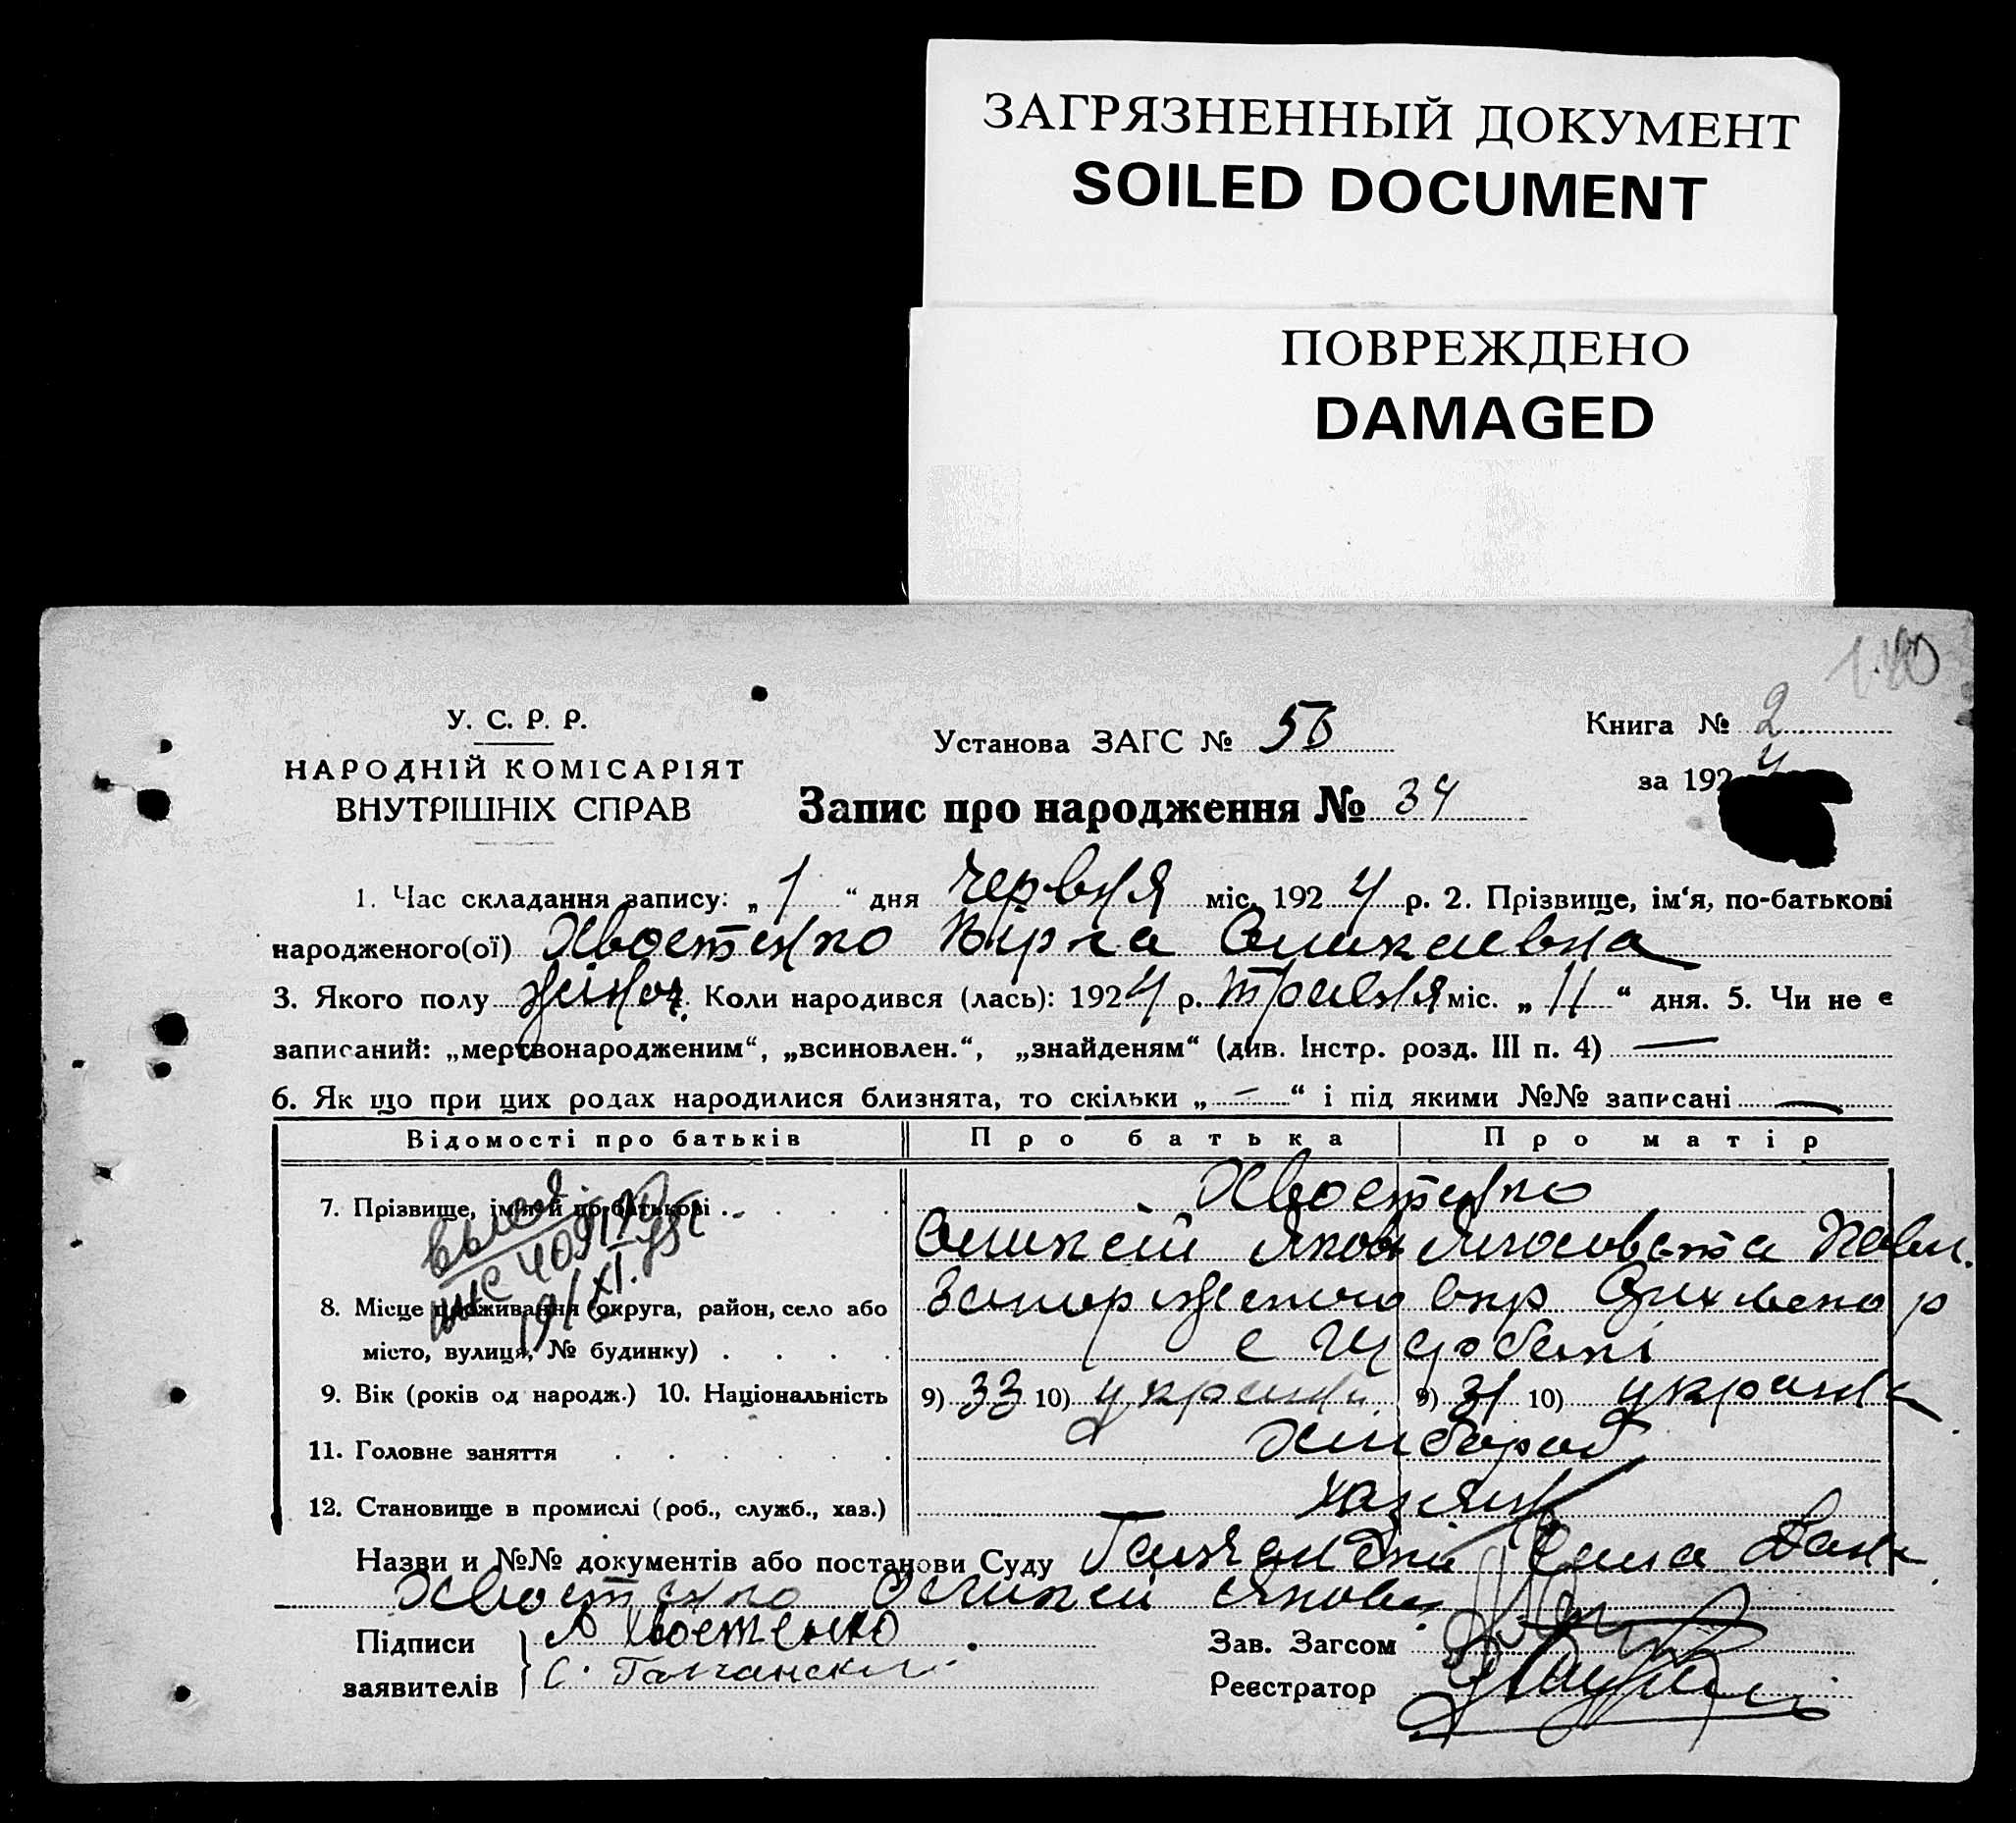 ЗАГРЯЗНЕННЫЙ ДОКУМЕНТ
SOILED DOCUMENT
ПОВРЕЖДЕНО
DAMAGED
У. С. Р. Р.
НАРОДНІЙ КОМІСАРІЯТ
ВНУТРІШНІХ СПРАВ
Установа ЗАГС № 56
Книга № 2
за 1924
Запис про народження № 34
1. Час складання запису: „ 1 “ дня червня міс. 1924 р. 2. Прізвище, ім'я, по-батькові
народженого(ої) Хвостенко Олексаевна
3. Якого полу жіноч. Коли народився (лась): 1924 р. травня міс. „ 11 “ дня. 5. Чи не є
записаний: „мертвонародженим“, „всиновлен.“, „знайденям“ (див. Інстр. розд. III п. 4) —
6. Як що при цих родах народилися близнята, то скільки „ — “ і під якими №№ записані —
Відомості про батьків Про батька Про матір
7. Прізвище, ім'я й по-батькові . . . . Хвостенко
Олексій Яков Павл.
8. Місце проживання (округа, район, село або Запоріжського окр р
місто, вулиця, № будинку) . . . . с
9. Вік (років од народж.) 10. Національність 9) 33 10) україн 9) 31 10) україн
11. Головне заняття . . . . . . Хлібороб
12. Становище в промислі (роб., служб., хаз.) хазяин
Назви и №№ документів або постанови Суду
Хвостенко Олексій Яков
Підписи заявителів А Хвостенко
С. Галчански
Зав. Загсом
Реєстратор